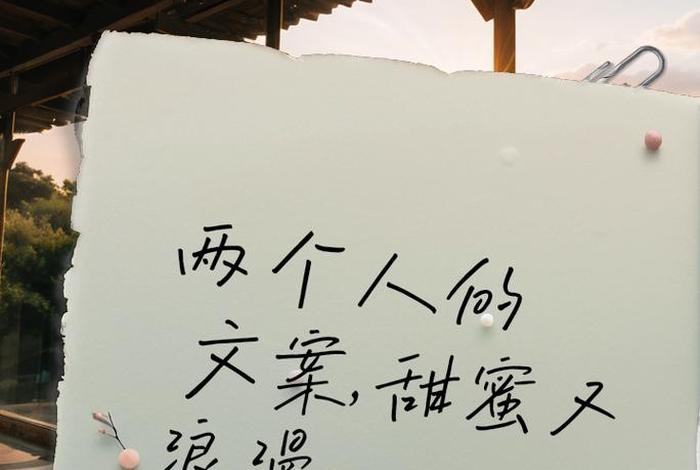 两个人的
文案,甜蜜又
浪漫